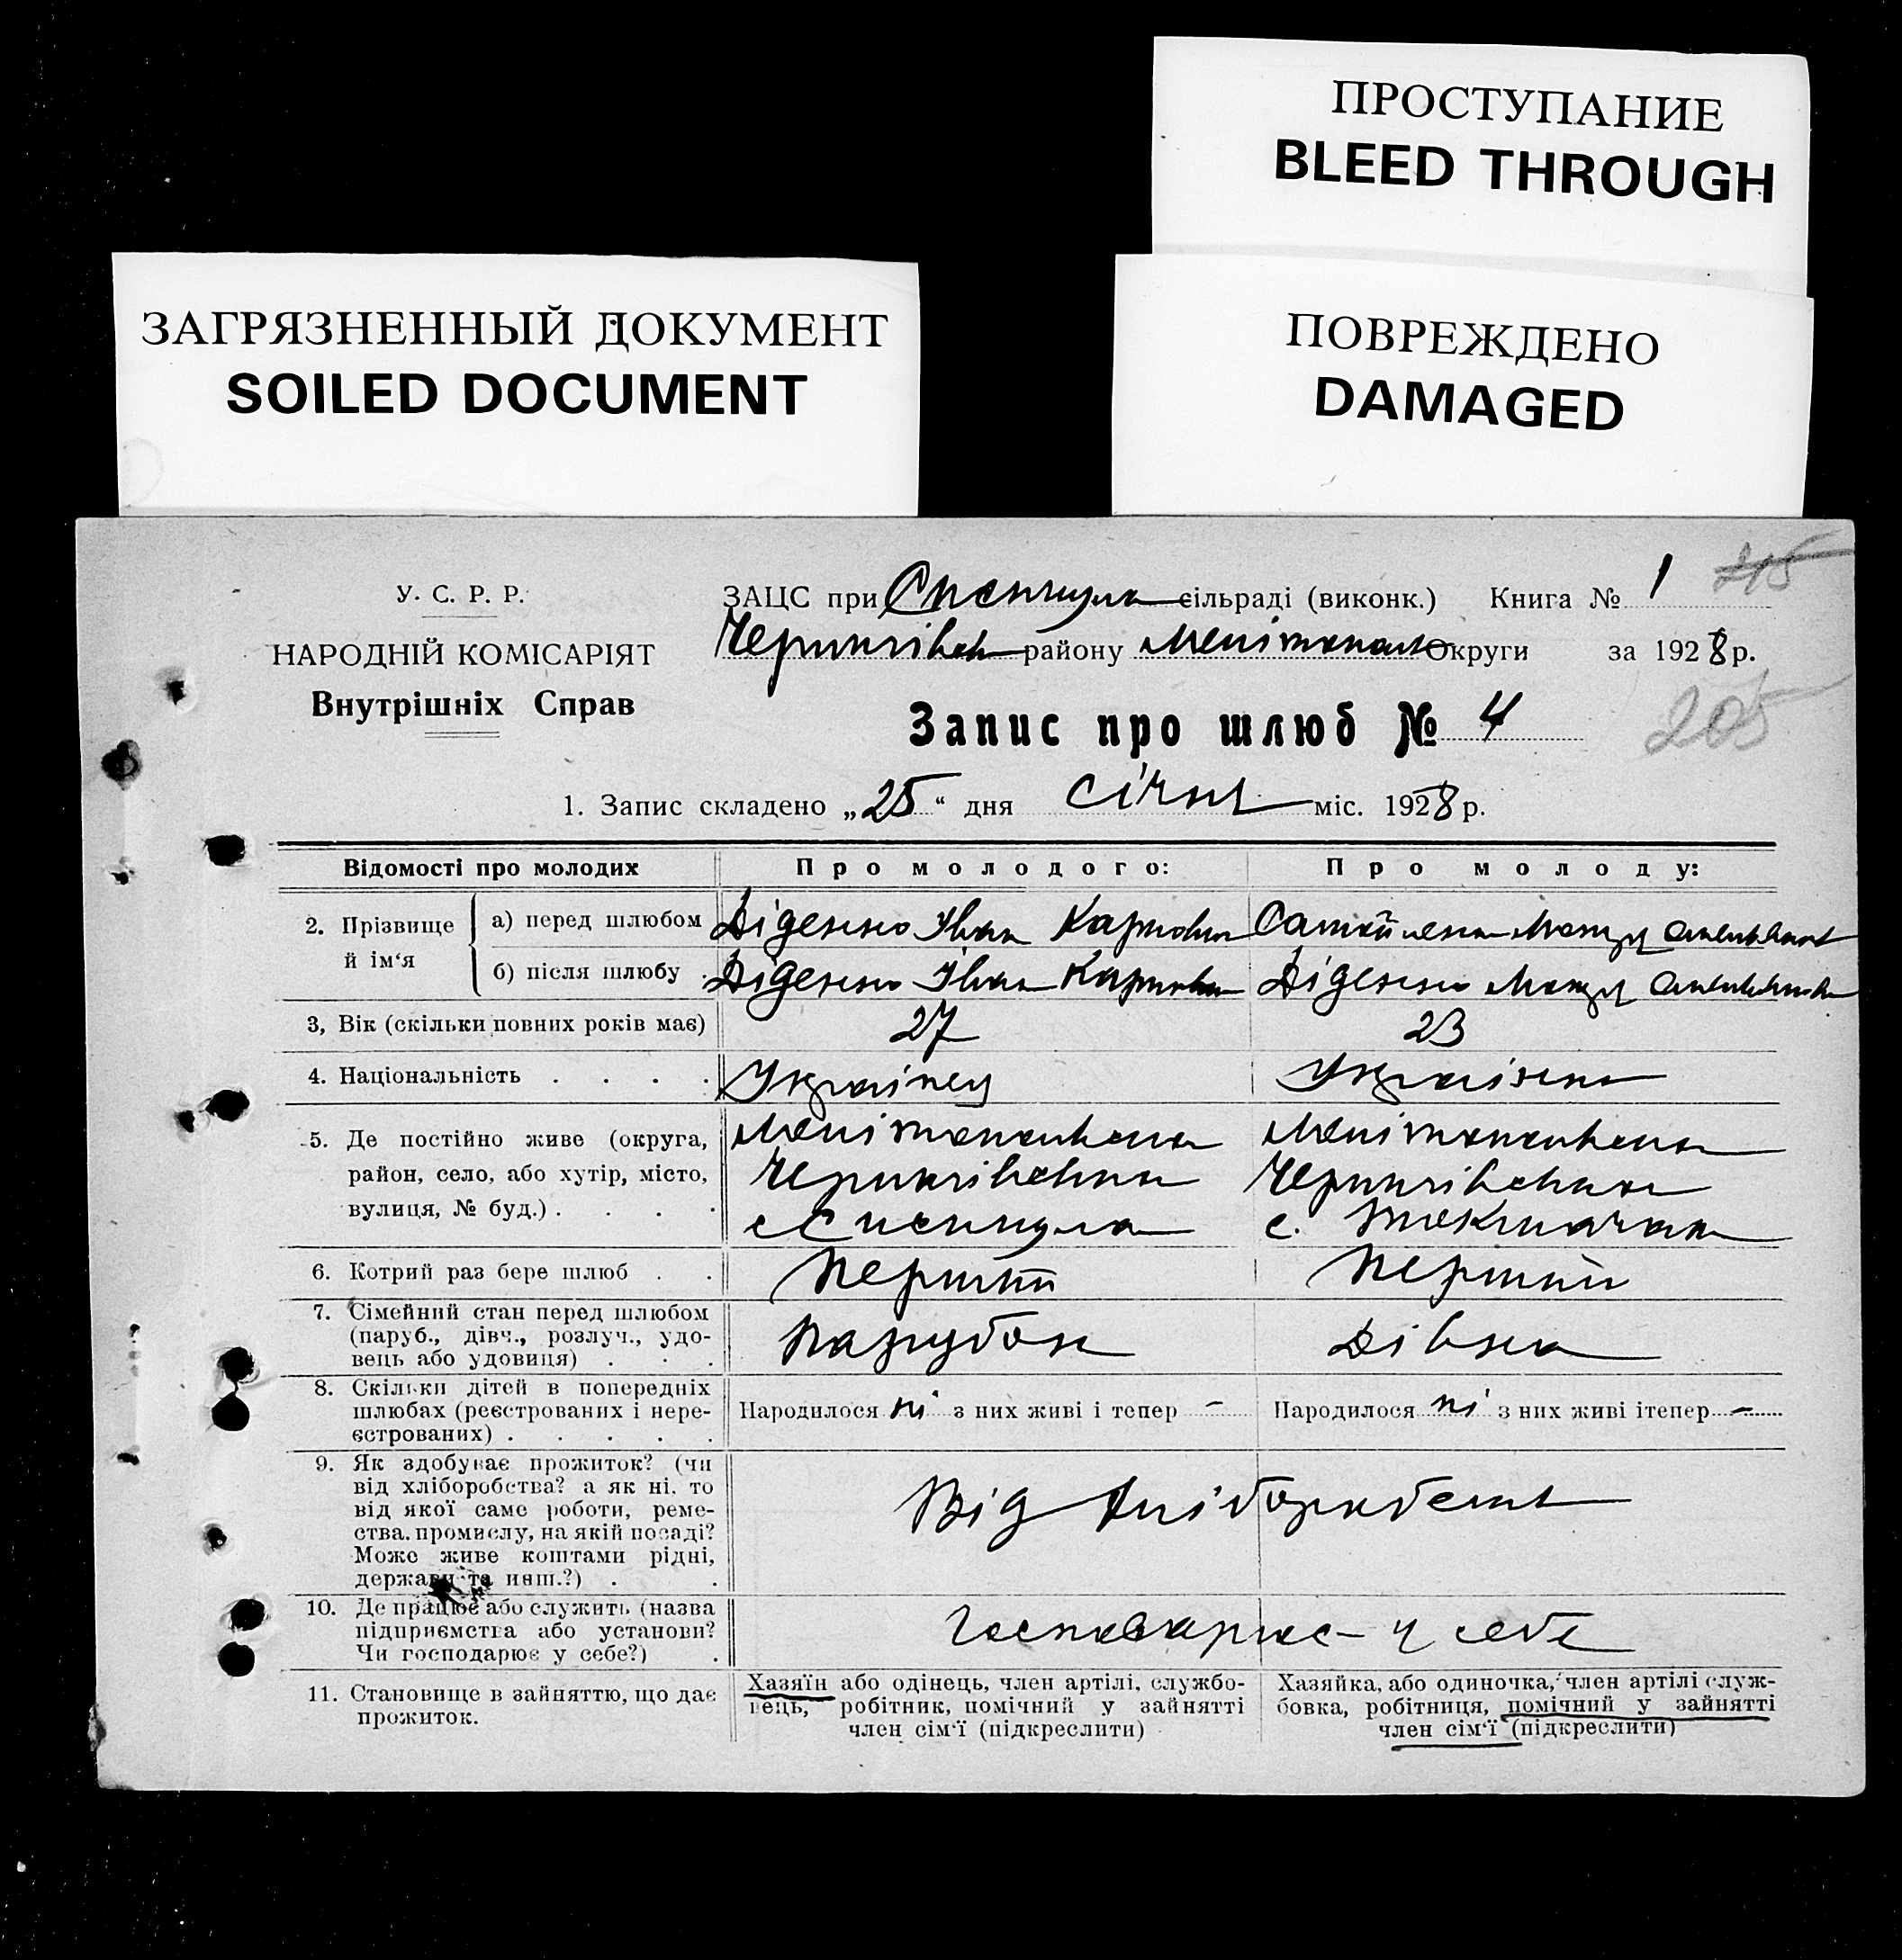 ПРОСТУПАНИЕ
BLEED THROUGH
ЗАГРЯЗНЕННЫЙ ДОКУМЕНТ
SOILED DOCUMENT
ПОВРЕЖДЕНО
DAMAGED
У. С. Р. Р.
НАРОДНІЙ КОМІСАРІЯТ
Внутрішніх Справ
215
ЗАЦС при сільраді (виконк.) Книга № 1
Чернигівск району Мелітополь Округи за 1928 р.
205
Запис про шлюб № 4
1. Запис складено „25“ дня січня міс. 1928 р.
Відомості про молодих Про молодого: Про молоду:
2. Прізвище й ім‘я
а) перед шлюбом Діденко Іван Карпович Самойленко
б) після шлюбу Діденко Іван Карпович Діденко
3, Вік (скільки повних років має) 27 23
4. Національність . . . . Українец Українка
5. Де постійно живе (округа, Мелітопольська Мелітопольська
район, село, або хутір, місто, Чернигівська Чернигівська
вулиця, № буд.) . . . . с с. Токмачка
6. Котрий раз бере шлюб . . Перший Перший
7. Сімейний стан перед шлюбом
(паруб., дівч., розлуч., удо-
вець або удовиця) . . . Парубок Дівка
8. Скільки дітей в попередніх
шлюбах (реєстрованих і нере-
єстрованих) . . . . .
Народилося ні з них живі і тепер - Народилося ні з них живі ітепер -
9. Як здобуває прожиток? (чи
від хліборобства? а як ні, то
від якої саме роботи, реме-
ства, промислу, на якій посаді?
Може живе коштами рідні,
держави та инш.?) . .
Від хліборобства
10. Де працює або служить (назва
підприємства або установи?
Чи господарює у себе?) .
Господарює у себе
11. Становище в зайняттю, що дає
прожиток.
Хазяїн або одінець, член артілі, службо-
вець, робітник, помічний у зайнятті
член сім‘ї (підкреслити)
Хазяйка, або одиночка, член артілі служ-
бовка, робітниця, помічний у зайнятті
член сім‘ї (підкреслити)